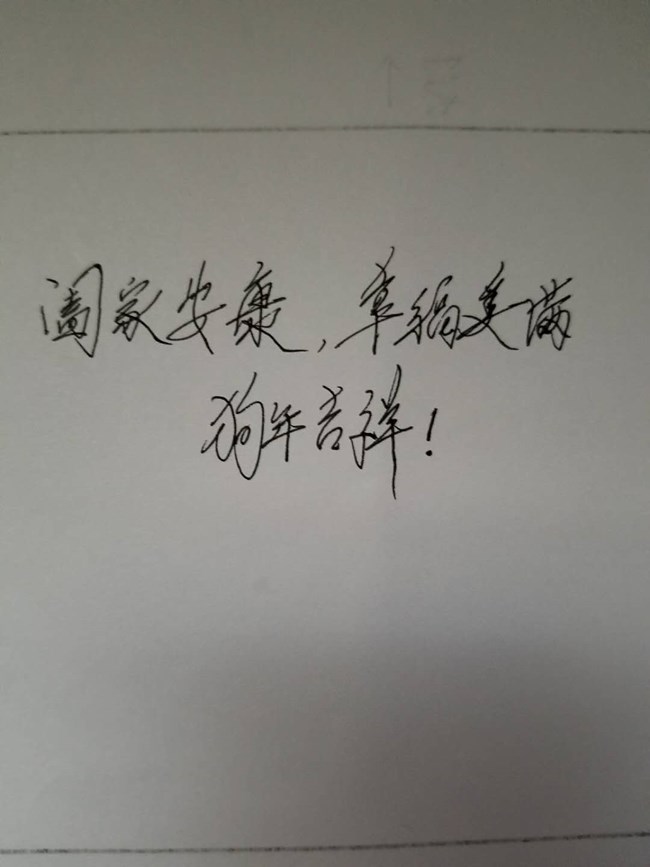 阖家安康，幸福美满
狗年吉祥！